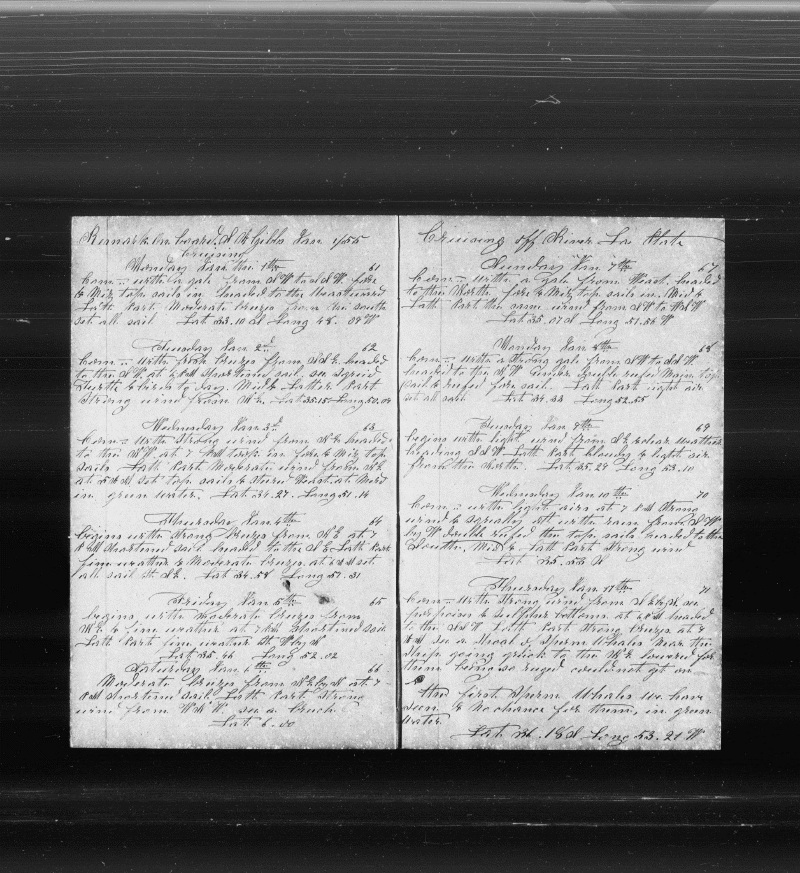 Remark On board. A R Gibbs Jan 1/55
Cruising
Monday Jan 1st 61
Com - with a gale from SW to SSW. fore
& Miz top sails in headed to the Westward
Latt Part Moderate breeze from the South
set all sail Lat 33.10 S Long 48.09 W
Tuesday Jan 2d 62
Com - with fresh breeze from headed
to the at PM shortened sail.
to day. Mid & Latter Part
Strong wind from NE. Lat 35.15 Long 50.04
Wednesday Jan 3d 63
Com - with strong wind from NE headed
to the NW at 7 PM top. in fore & Miz top
sails Latt Part Moderate wind from NE
at 5 AM set top sails & steered West at Merd
in green water. Lat 34.27. Long 51.14
Thursday Jan 4th 64
begins with strong breeze from NE at 7
PM shortened sail headed to the SE. Latt Part
fine weather & Moderate breeze. at AM set
all sail St SE. Lat 34.58 Long 51.31
Friday Jan 5th 65
begins with Moderate breeze from
NE & fine weather at 7 PM shortened sail
Latt Part fine weather St W by N
Lat 35.46 Long 52.02
Saturday Jan 6th 66
Moderate breeze from NE by N at 7
PM shortened sail. Latt Part Strong
wind from WNW. saw a
Lat 6.00
Cruising off River La Plate
Sunday Jan 7th 67
Com - with a gale from West. headed
to the North. fore & Miz top sails in. Mid &
Latt Part the same wind from SW to WSW
Lat 35.07 S Long 51.56 W
Monday Jan 8th 68
Com - with a strong gale from SW to SSW
headed to the under double reefed Main top
sail & reefed fore sail. Latt Part light air
set all sail Lat 34.44 Long 52.55
Tuesday Jan 9th 69
begins with light wind from SE & clear weather
heading SSW. Latt Part cloudy & light air
from the North. Lat 35.29 Long 53.10
Wednesday Jan 10th 70
Com - with light airs at 7 PM strong
wind & squally set with rain from SW
by W double reefed the top sails headed to the
South, Mid & Latt Part strong wind
Lat 35.55 S
Thursday Jan 11th 71
Com - with strong wind from saw
porpoise & sulpher bottoms at PM headed
to the SSW Latt Part strong breeze at 7
AM saw a shoal of Sperm Whales near the
ship going quick to the NE lowered for
them being so ruged could not get on
the first Sperm Whales we have
seen & no chance for them, in green
water
Lat 36.18 S Long 53.21 W